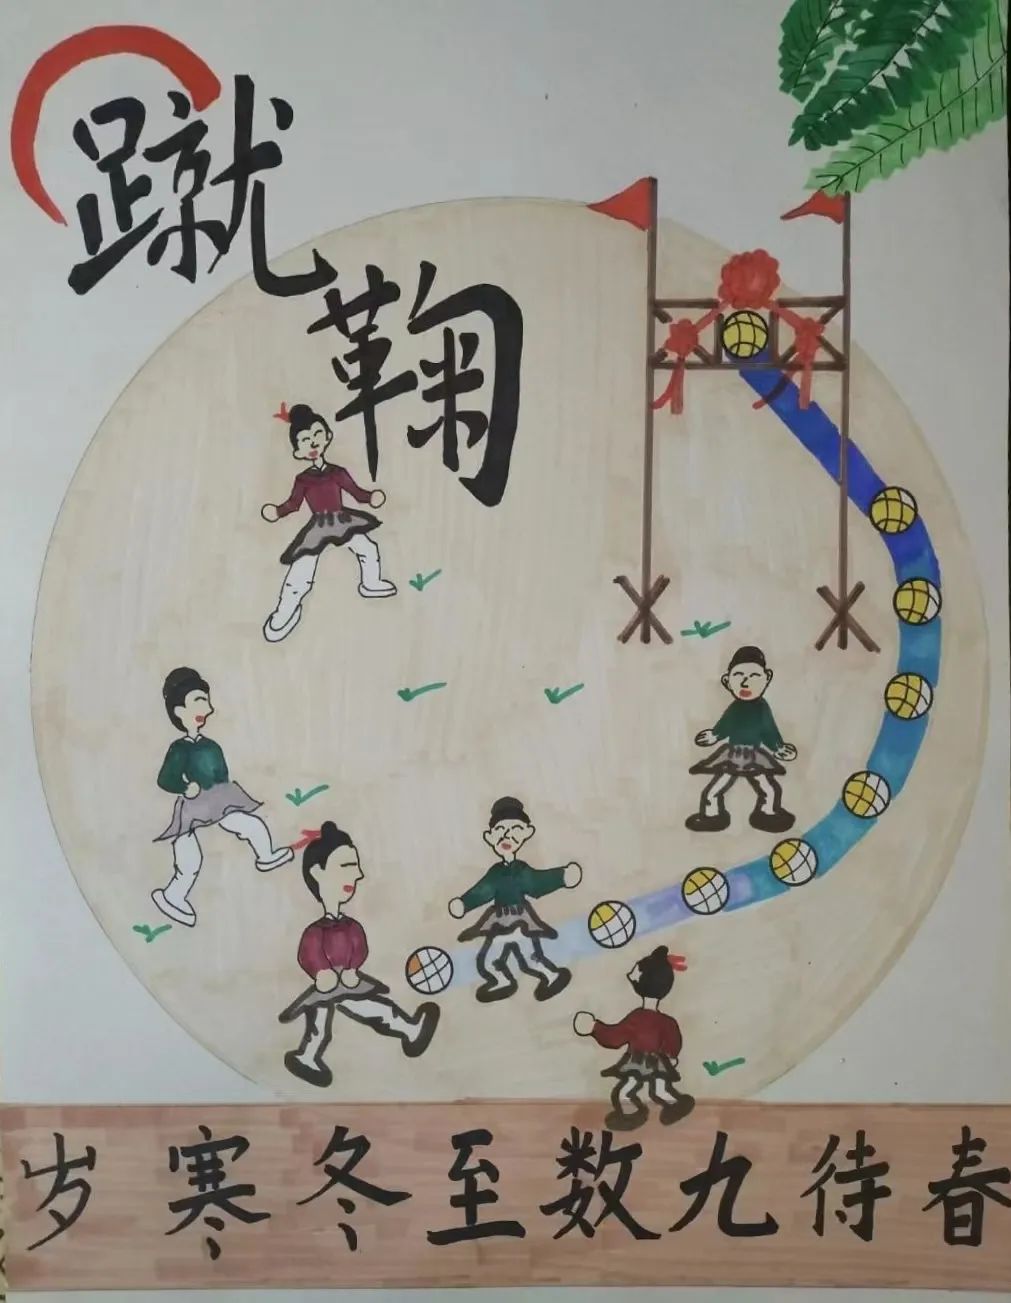 蹴鞠
岁寒冬至数九待春